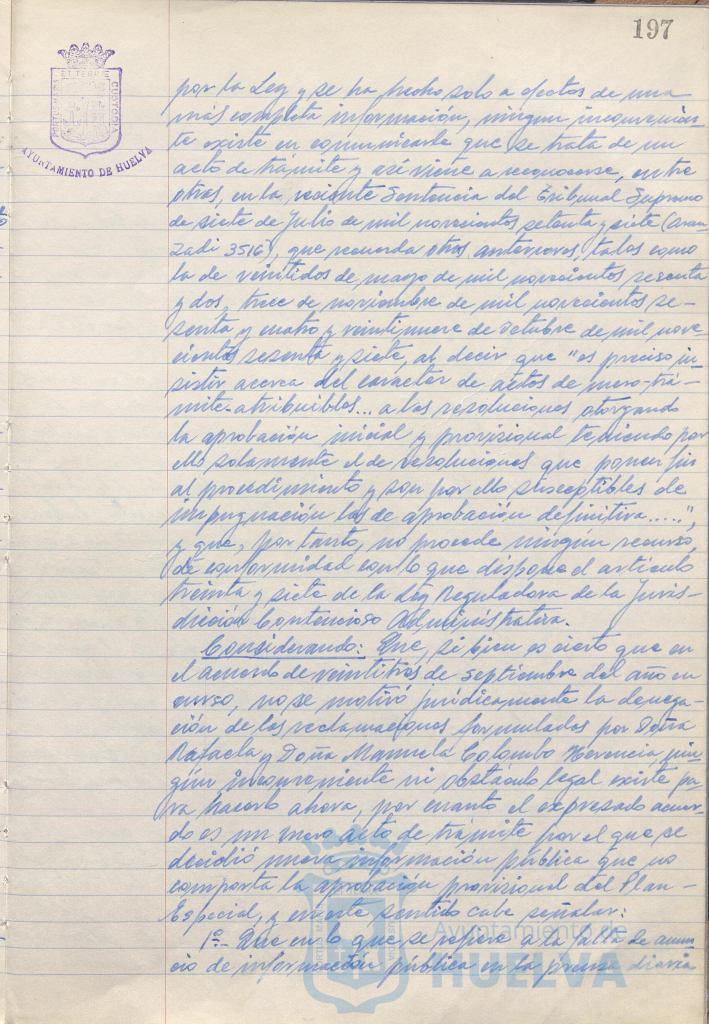 197
PORTUS MARIS ET TERRE CUSTODIA
AYUNTAMIENTO DE HUELVA
por la Ley y se ha hecho solo a efectos de una
más completa información, ningun inconvenien-
te existe en comunicarle que se trata de un
acto de trámite y así viene a reconocerse, entre
otras, en la reciente Sentencia del Tribunal Supremo
de siete de Julio de mil novecientos setenta y siete (Aran-
zadi 3516), que recuerda otras anteriores, tales como
la de veintidos de mayo de mil novecientos sesenta
y dos, trece de noviembre de mil novecientos se-
senta y cuatro y veintinueve de octubre de mil nove-
cientos sesenta y siete, al decir que "es preciso in-
sistir acerca del caracter de actos de mero trá-
mite-atribuibles... a las resoluciones otorgando
la aprobación inicial y provisional teniendo por
ello solamente el de resoluciones que ponen fin
al procedimiento y son por ello susceptibles de
impugnación las de aprobación definitiva.....",
y que, por tanto, no procede ningun recurso,
de conformidad con lo que dispone el artículo
treinta y siete de la Ley Reguladora de la Juris-
dicción Contencioso Administrativa.
Considerando: Que, si bien es cierto que en
el acuerdo de veintitres de septiembre del año en
curso, no se motivó jurídicamente la denega-
ción de las reclamaciones formuladas por Doña
Rafaela y Doña Manuela Colombo Herencia, nin-
gún inconveniente ni obstáculo legal existe pa-
ra hacerlo ahora, por cuanto el expresado acuer-
do es un mero acto de trámite por el que se
decidió nueva información pública que no
comporta la aprobación provisional del Plan-
Especial, y en este sentido cabe señalar:
1º.- Que en lo que se refiere a la falta de anun-
cio de información pública en la prensa diaria
Ayuntamiento de
HUELVA